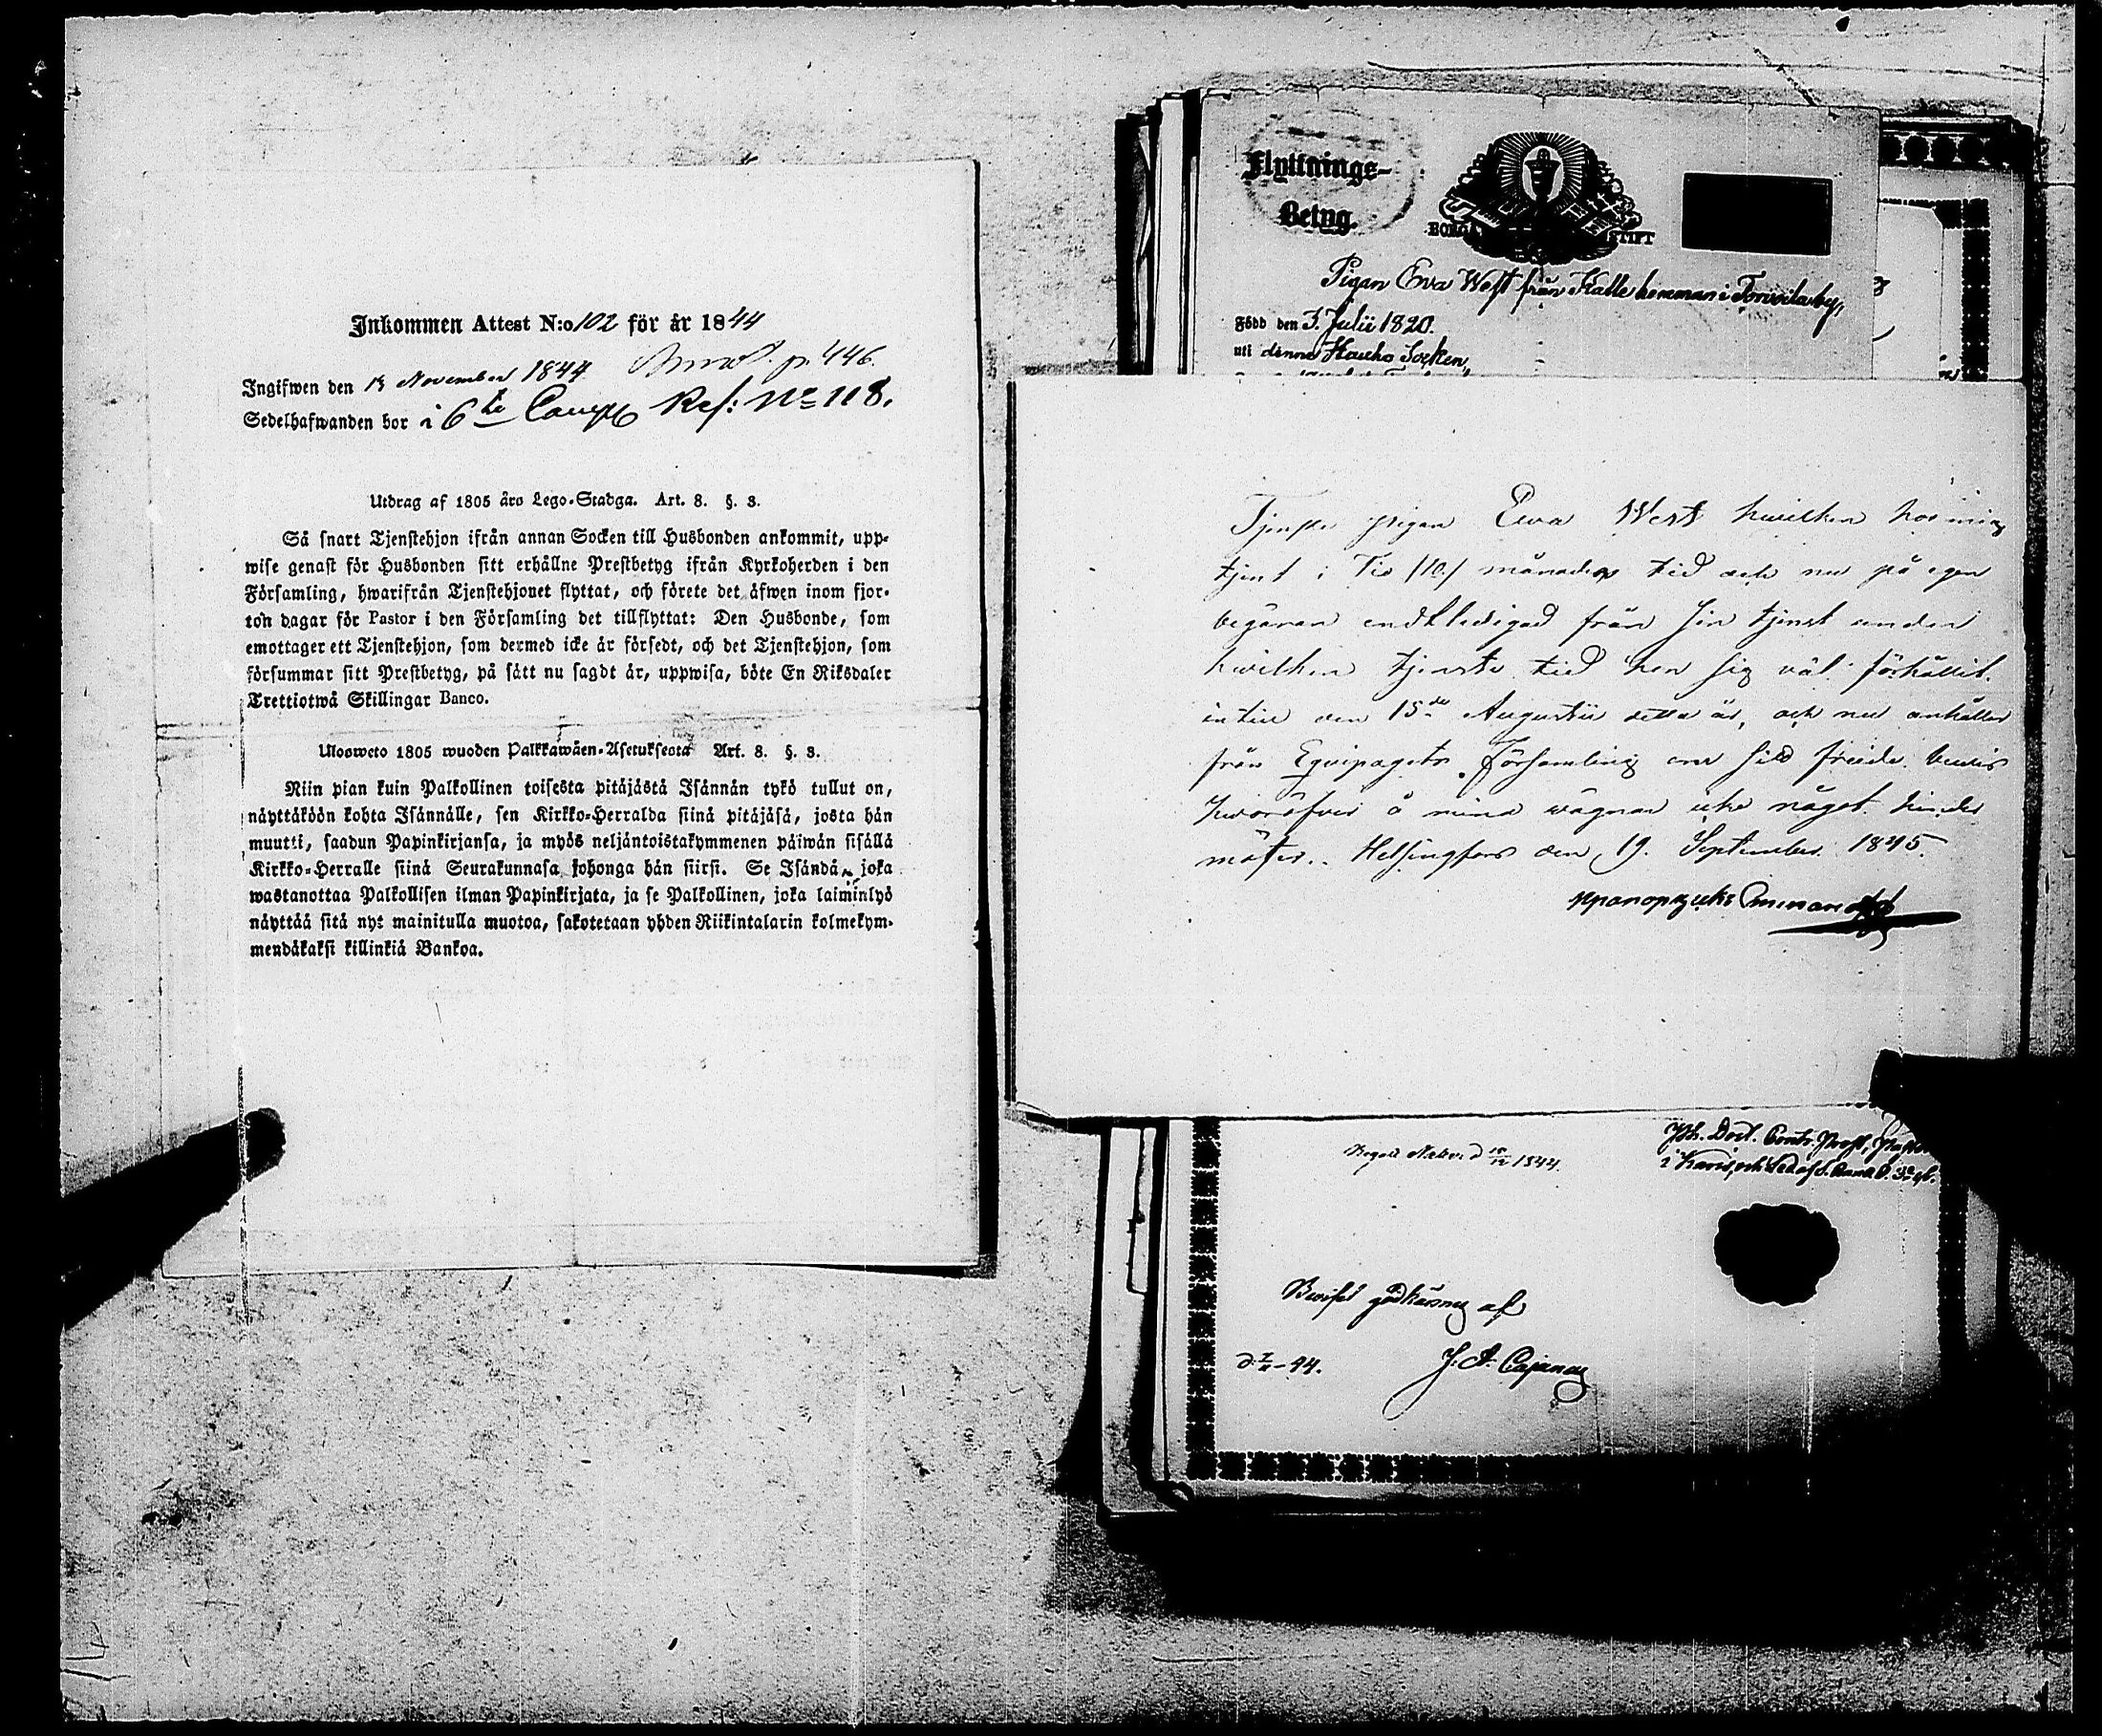 Inkommen Attest N:o 102 för år 1844
Ingifwen den 13 November 1844 p. 446.
Sedelhafwanden bor i 6te Comp Ref: No 118.
Utdrag af 1805 års Lego-Stadga. Art. 8. §. 3.
Så snart Tjenstehjon ifrån annan Socken till Husbonden ankommit, upp-
wise genast för Husbonden sitt erhållne Prestbetyg ifrån Kyrkoherden i den
Församling, hwarifrån Tjenstehjonet flyttat, och förete det äfwen inom fjor-
ton dagar för Pastor i den Församling det tillflyttat: Den Husbonde, som
emottager ett Tjenstehjon, som dermed icke är försedt, och det Tjenstehjon, som
försummar sitt Prestbetyg, på sätt nu sagdt är, uppwisa, böte En Riksdaler
Trettiotwå Skillingar Banco.
Ulosweto 1805 wuoden Palkkawäen-Asetuksesta Art. 8. §. 3.
Niin pian kuin Palkollinen toisesta pitäjästä Isännän tykö tullut on,
näyttäköön kohta Isännälle, sen Kirkko-Herralda siinä pitäjäsä, josta hän
muutti, saadun Papinkirjansa, ja myös neljäntoistakymmenen päiwän sisällä
Kirkko-Herralle siinä Seurakunnasa johonga hän siirsi. Se Isändä, joka
wastanottaa Palkollisen ilman Papinkirjata, ja se Palkollinen, joka laiminlyö
näyttää sitä nyt mainitulla muotoa, sakotetaan yhden Riikintalarin kolmekym-
mendäkaksi killinkiä Bankoa.
Flyttnings-
Betyg.
BORGÅ STIFT
Pigan Eva West från Kalle hemman i Torvoila by,
Född den 3. Julii 1820.
uti denna Hauho Socken,
Tjenste pigan Ewa West hwilken hos mig
tjent i Tio /10/ månaders tid och nu på egen
begäran endtledigad från sin tjenst under
hwilken tjenste tid hon sig väl förhållit
intill den 15de Augustii detta år, och nu anhåller
från Eqvipagets Församling om sitt freide bewis
hworöfver å mina wägnar icke något hinder
möter.. Helsingfors den 19. September 1845.
J. A. Cajanus
Bewiset godkännes af